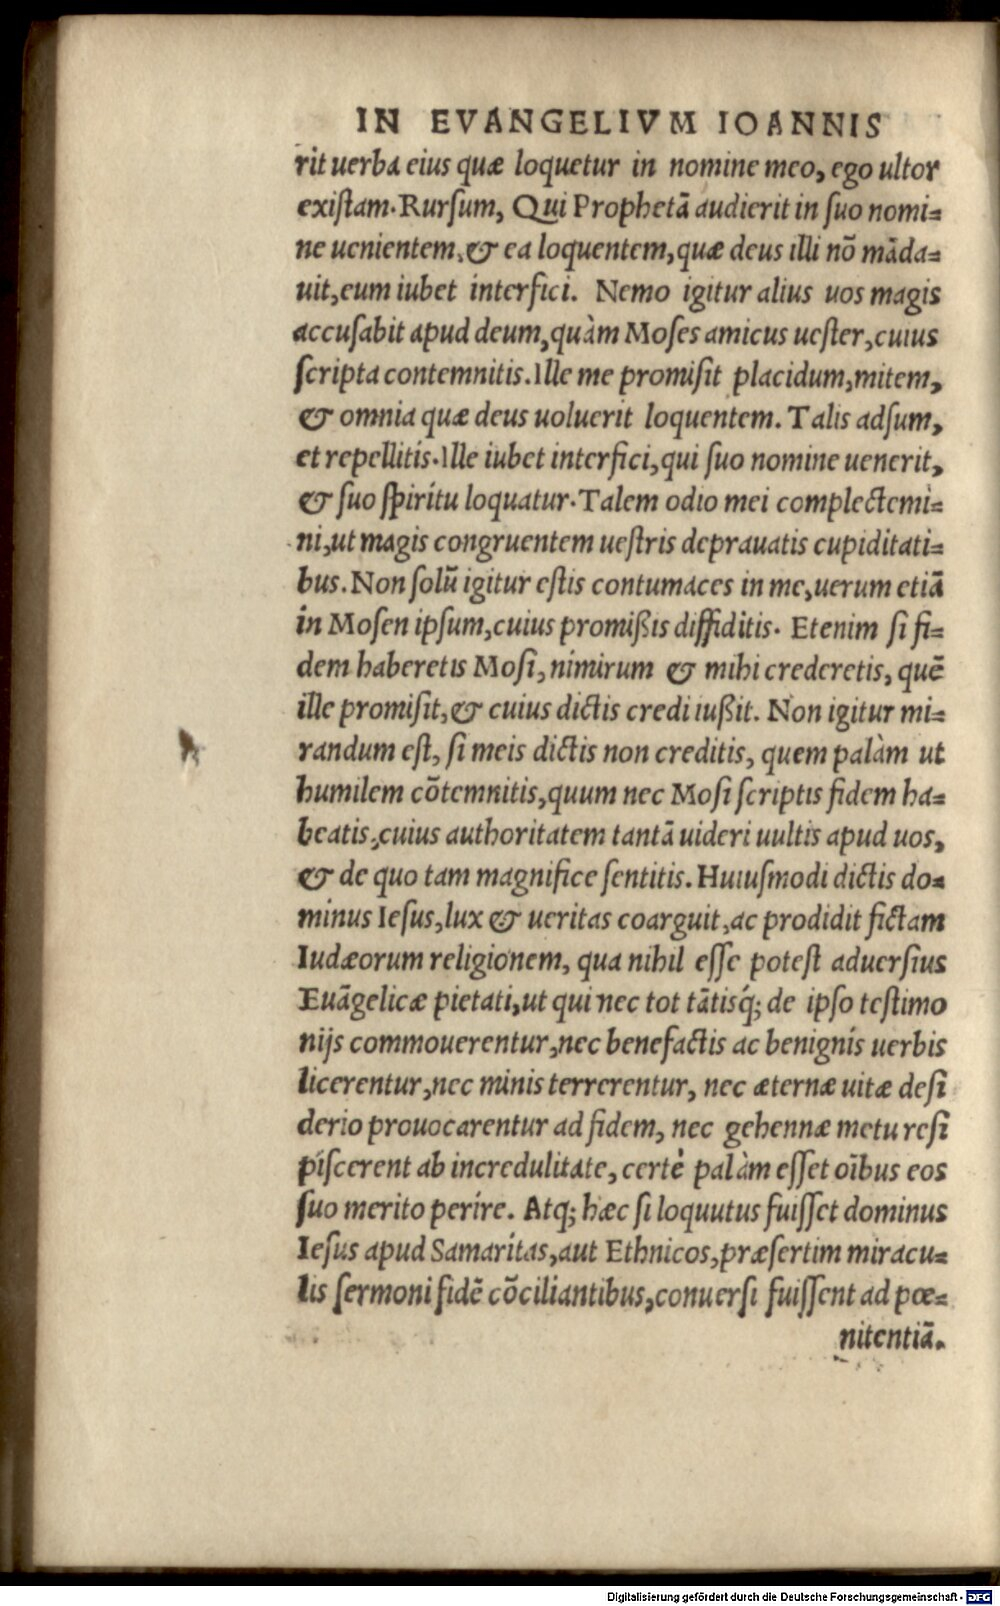 IN EVANGELIVM IOANNIS
rit uerba eius quæ loquetur in nomine meo, ego ultor
existam. Rursum, Qui Prophetā audierit in suo nomi=
ne uenientem, & ea loquentem, quæ deus illi nō māda=
uit, eum iubet interfici. Nemo igitur alius uos magis
accusabit apud deum, quàm Moses amicus uester, cuius
scripta contemnitis. Ille me promisit placidum, mitem,
& omnia quæ deus uoluerit loquentem. Talis adsum,
et repellitis. Ille iubet interfici, qui suo nomine uenerit,
& suo spiritu loquatur. Talem odio mei complectemi=
ni, ut magis congruentem uestris deprauatis cupiditati=
bus. Non solū igitur estis contumaces in me, uerum etiā
in Mosen ipsum, cuius promißis diffiditis. Etenim si fi=
dem haberetis Mosi, nimirum & mihi crederetis, quē
ille promisit, & cuius dictis credi iußit. Non igitur mi=
randum est, si meis dictis non creditis, quem palàm ut
humilem cōtemnitis, quum nec Mosi scriptis fidem ha=
beatis, cuius authoritatem tantā uideri uultis apud uos,
& de quo tam magnifice sentitis. Huiusmodi dictis do=
minus Iesus, lux & ueritas coarguit, ac prodidit fictam
Iudæorum religionem, qua nihil esse potest aduersius
Euāgelicæ pietati, ut qui nec tot tātisq́; de ipso testimo
nijs commouerentur, nec benefactis ac benignis uerbis
licerentur, nec minis terrerentur, nec æternæ uitæ desi
derio prouocarentur ad fidem, nec gehennæ metu resi
piscerent ab incredulitate, certè palàm esset oībus eos
suo merito perire. Atq; hæc si loquutus fuisset dominus
Iesus apud Samaritas, aut Ethnicos, præsertim miracu=
lis sermoni fidē cōciliantibus, conuersi fuissent ad pœ=
nitentiā.
Digitalisierung gefördert durch die Deutsche Forschungsgemeinschaft - DFG